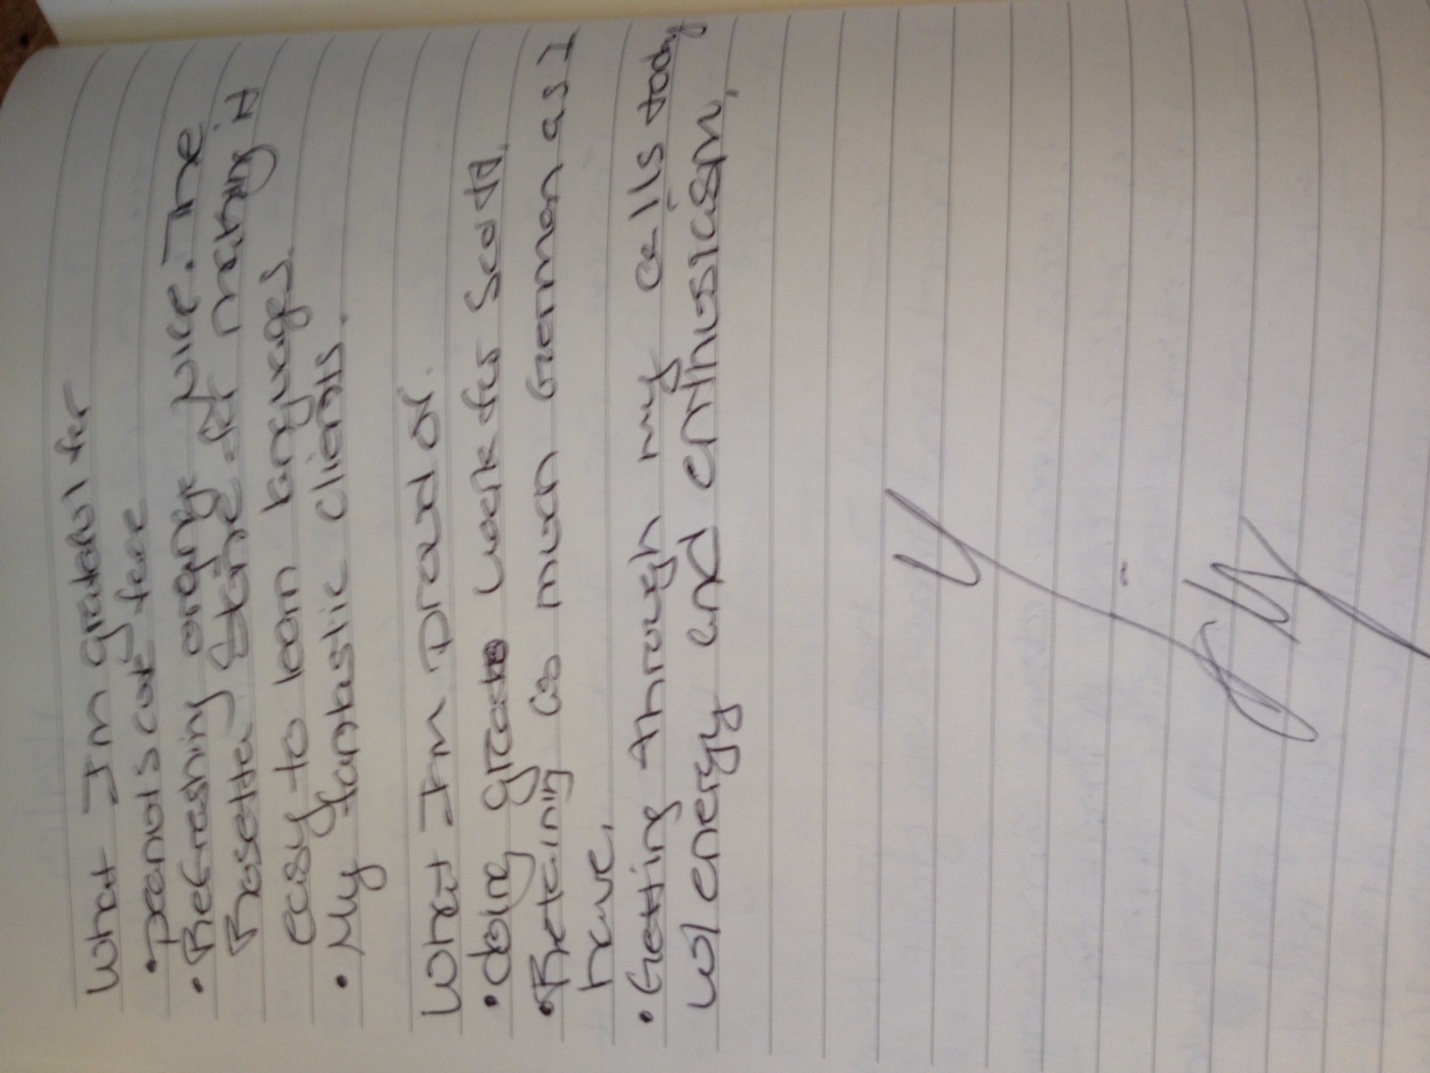 What I'm grateful for
• peanuts cafe
• Refreshing orange juice. The
Rosetta Stone for making it
easy to learn languages.
• My fantastic clients.
What I'm proud of.
• doing great work for Scott.
• Retaining as much German as I
have.
• Getting through my calls today
w/ energy and enthusiasm.